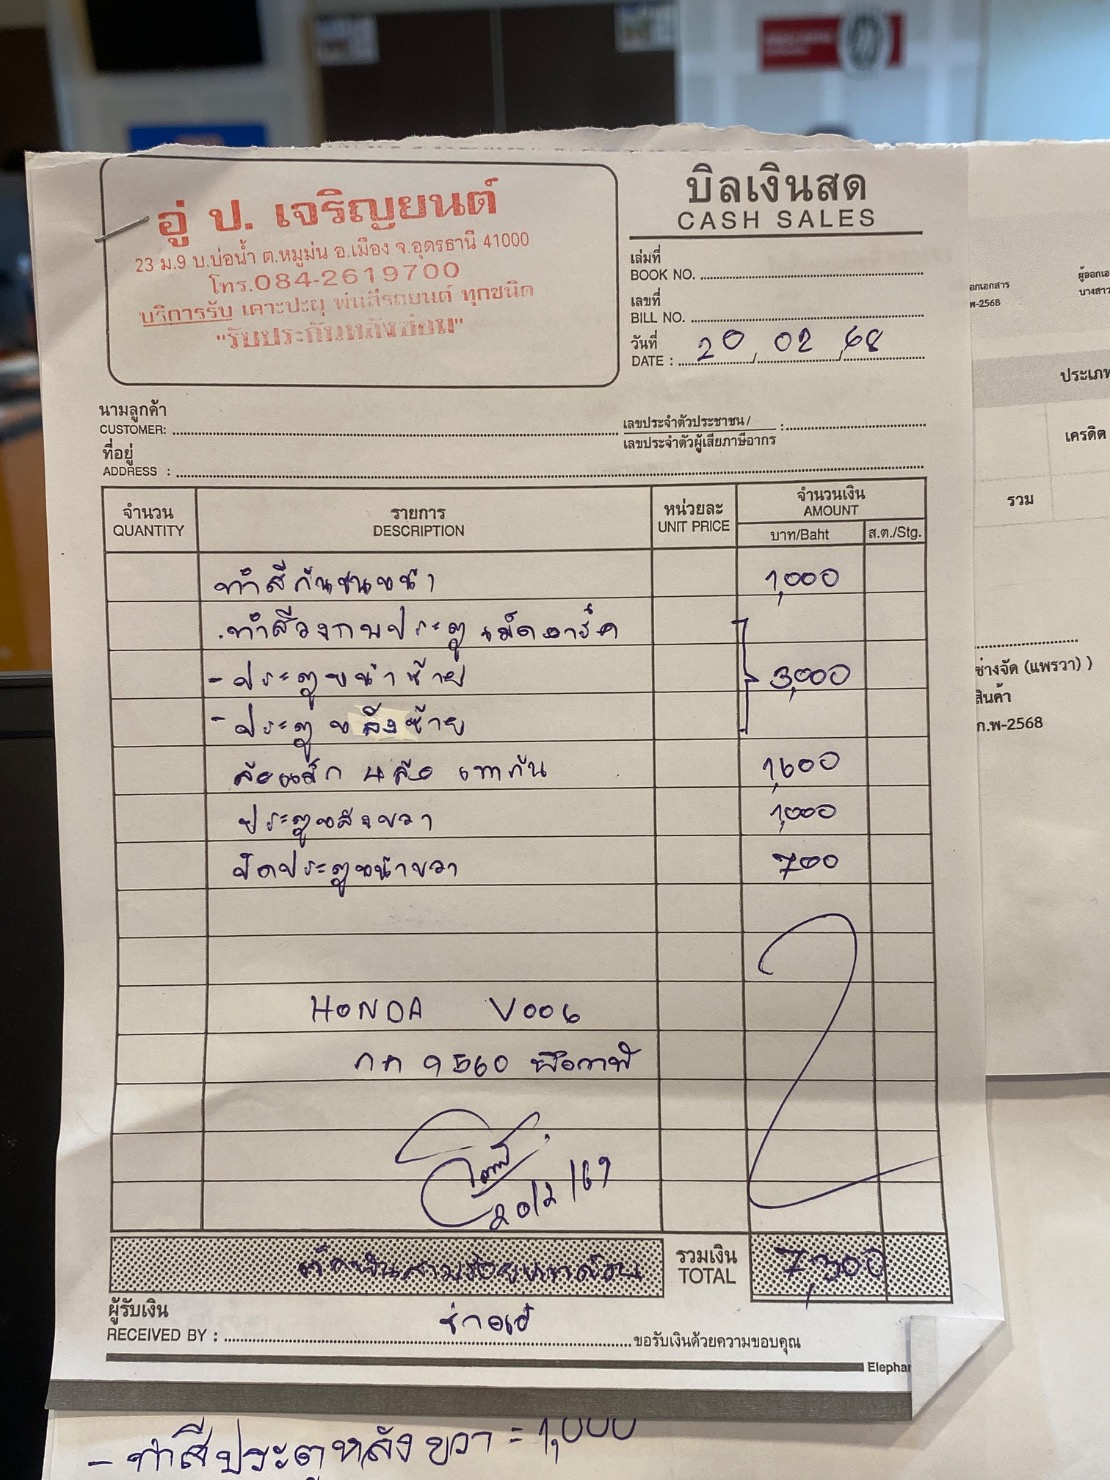 อู่ ป. เจริญยนต์
23 ม.9 บ.บ่อน้ำ ต.หมูม่น อ.เมือง จ.อุดรธานี 41000
โทร.084-2619700
บริการรับ เคาะปะผุ พ่นสีรถยนต์ ทุกชนิด
"รับประกันหลังซ่อม"
บิลเงินสด
CASH SALES
เล่มที่
BOOK NO.
เลขที่
BILL NO.
วันที่
DATE : 20 / 02 / 68
นามลูกค้า
CUSTOMER:
เลขประจำตัวประชาชน /
เลขประจำตัวผู้เสียภาษีอากร :
ที่อยู่
ADDRESS :
จำนวน
QUANTITY
รายการ
DESCRIPTION
หน่วยละ
UNIT PRICE
จำนวนเงิน
AMOUNT
บาท/Baht ส.ต./Stg.
ทำสีกันชนหน้า 1,000
ทำสีวงกบประตู
- ประตูหน้าซ้าย 3,000
- ประตูหลังซ้าย
4 ล้อ 1,600
ประตูหลังขวา 1,000
ประตูหน้าขวา 700
HONDA V006
กค 9560
20/2/69
รวมเงิน
TOTAL 7,300
ผู้รับเงิน
RECEIVED BY : ช่างเอ๋ ขอรับเงินด้วยความขอบคุณ
Elephan
- ทำสีประตูหลังขวา = 1,000
อกเอกสาร
พ-2568
ผู้ออกเอ
บางสาว
ประเภท
เครดิต
รวม
ช่างจัด (แพรวา) )
สินค้า
ก.พ-2568